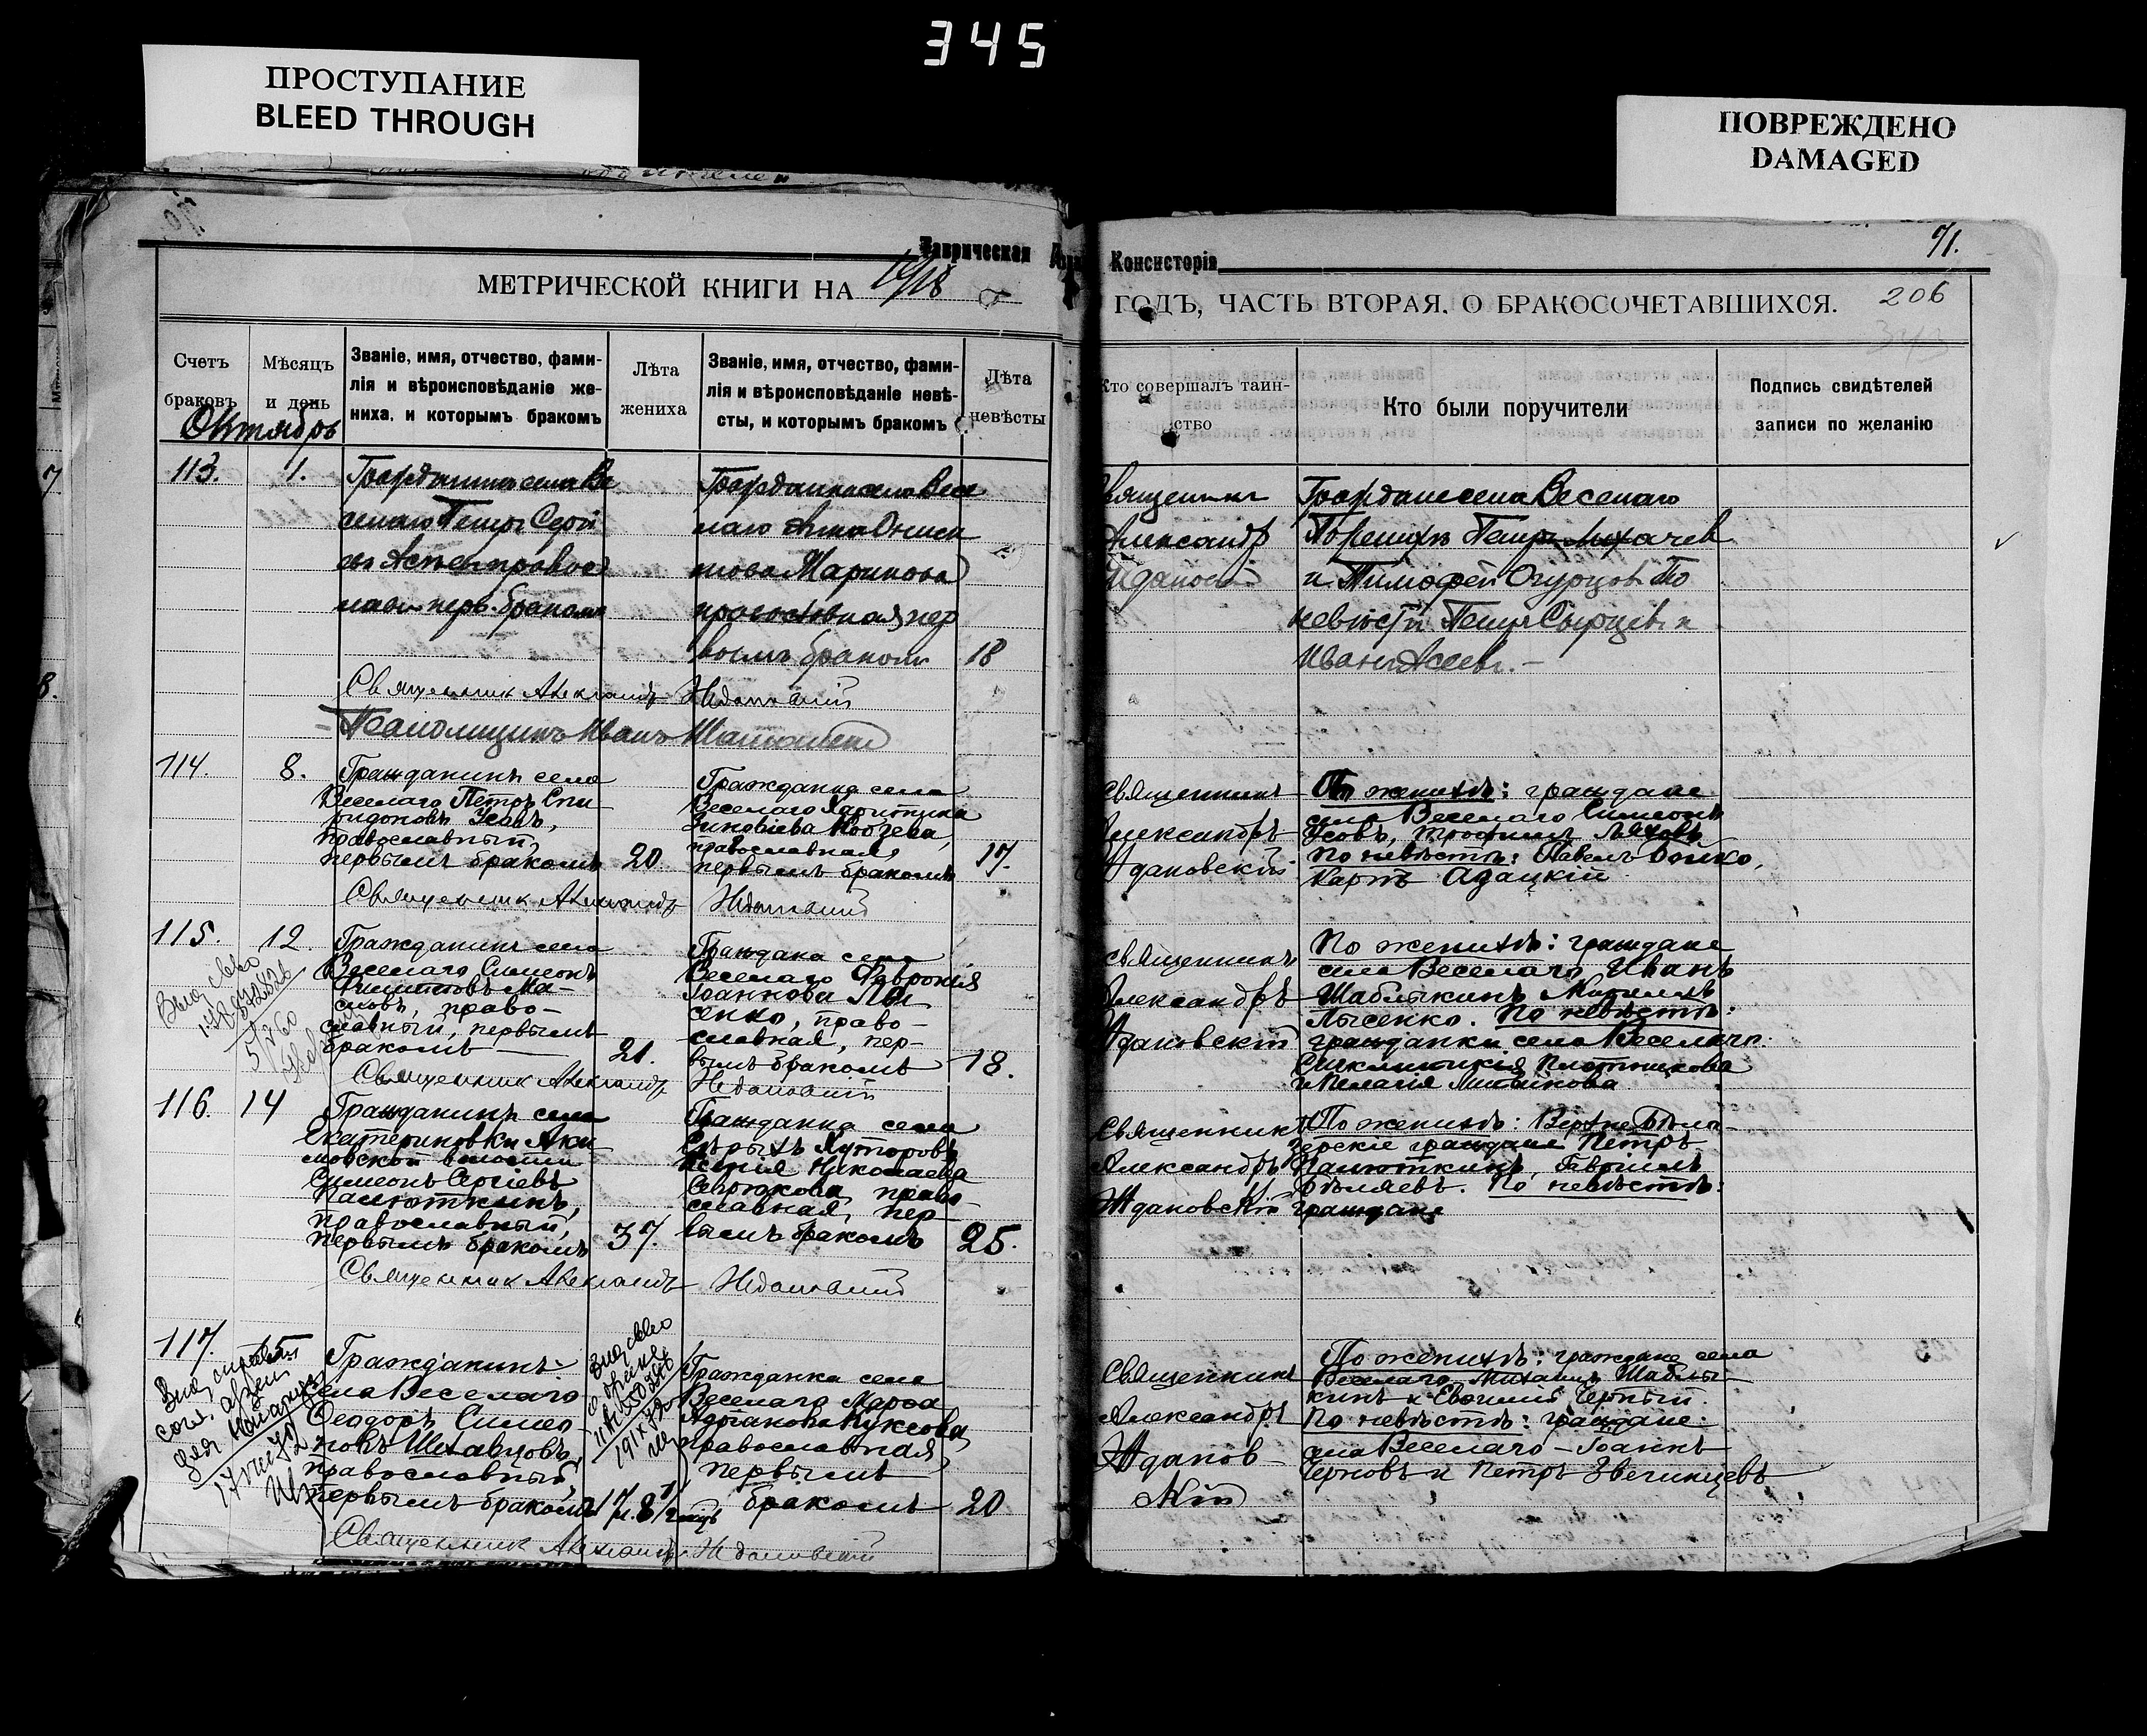 345
ПРОСТУПАНИЕ
BLEED THROUGH
ПОВРЕЖДЕНО
DAMAGED
Таврическая
Консисторія
71.
МЕТРИЧЕСКОЙ КНИГИ НА 1918
ГОДЪ, ЧАСТЬ ВТОРАЯ, О БРАКОСОЧЕТАВШИХСЯ.
206
343
Счетъ
браковъ
Мѣсяцъ
и день
Званіе, имя, отчество, фами-
лія и вѣроисповѣданіе же-
ниха, и которымъ бракомъ
Лѣта
жениха
Званіе, имя, отчество, фами-
лія и вѣроисповѣданіе невѣ-
сты, и которымъ бракомъ
Лѣта
невѣсты
Кто совершалъ таин-
ство
Кто были поручители
Подпись свидѣтелей
записи по желанію
Октябрь
113.
1.
Гражданинъ села Ве
селаго Петръ Сергі
бракомъ
Гражданка села Весе
лаго
Маринова
православная, пер
вымъ бракомъ
18
Священникъ
Александръ
Ждановскій
Граждане села Веселаго
По женихѣ Петръ
и Тимофей Огурцовъ По
невѣстѣ Петръ Сырцевъ и
Иванъ
Священникъ Александръ Ждановскій
Псаломщикъ Иванъ
114.
8.
Гражданинъ села
Веселаго Петръ Спи
ридоновъ Усовъ,
православный,
первымъ бракомъ
20.
Гражданка села
Веселаго Харитина
Зиновіева Кобзева,
православная
первымъ бракомъ
17.
Священникъ
Александръ
Ждановскій
По женихѣ: граждане
села Веселаго Симеонъ
Усовъ, Трофимъ Ляховъ
По невѣстѣ: Павелъ Бойко,
Карпъ Адацкій
Священникъ Александръ Ждановскій
115.
12.
Гражданинъ села
Веселаго Симеонъ
Филипповъ Ма-
словъ, право-
славный, первымъ
бракомъ
21.
Гражданка села
Веселаго Февронія
Іоаннова Лы
сенко, право-
славная, пер-
вымъ бракомъ
18.
Священникъ
Александръ
Ждановскій
По женихѣ: граждане
села Веселаго Иванъ
Шаблыкинъ
Лысенко. По невѣстѣ:
гражданки села Веселаго
Синклитикія Плотникова
и Пелагія
Священникъ Александръ Ждановскій
116.
14
Гражданинъ села
Екатериновки Аки
мовской волости
Симеонъ Сергіевъ
Палюткинъ,
православный,
первымъ бракомъ
37.
Гражданка села
Сѣрыхъ Хуторовъ
Николаева
Сердюкова, право-
славная, пер-
вымъ бракомъ
25.
Священникъ
Александръ
Ждановскій
По женихѣ: Верхне Бѣло-
зерскіе граждане Петръ
Палюткинъ, Гавріилъ
Бѣляевъ. По невѣстѣ:
граждане
Священникъ Александръ Ждановскій
117.
15
Гражданинъ
села Веселаго
Ѳеодоръ Симео
новъ Шехавцовъ,
православный,
первымъ бракомъ
17 л. 8 1/2 мѣс
Гражданка села
Веселаго Марѳа
Адріанова Куксова,
православная
первымъ
бракомъ
20
Священникъ
Александръ
Ждановскій
По женихѣ: граждане села
Веселаго Михаилъ Шаблы-
кинъ и Евѳимій Черный.
По невѣстѣ: граждане
села Веселаго – Іоаннъ
Черновъ и Петръ Звегинцевъ
Священникъ Александръ Ждановскій